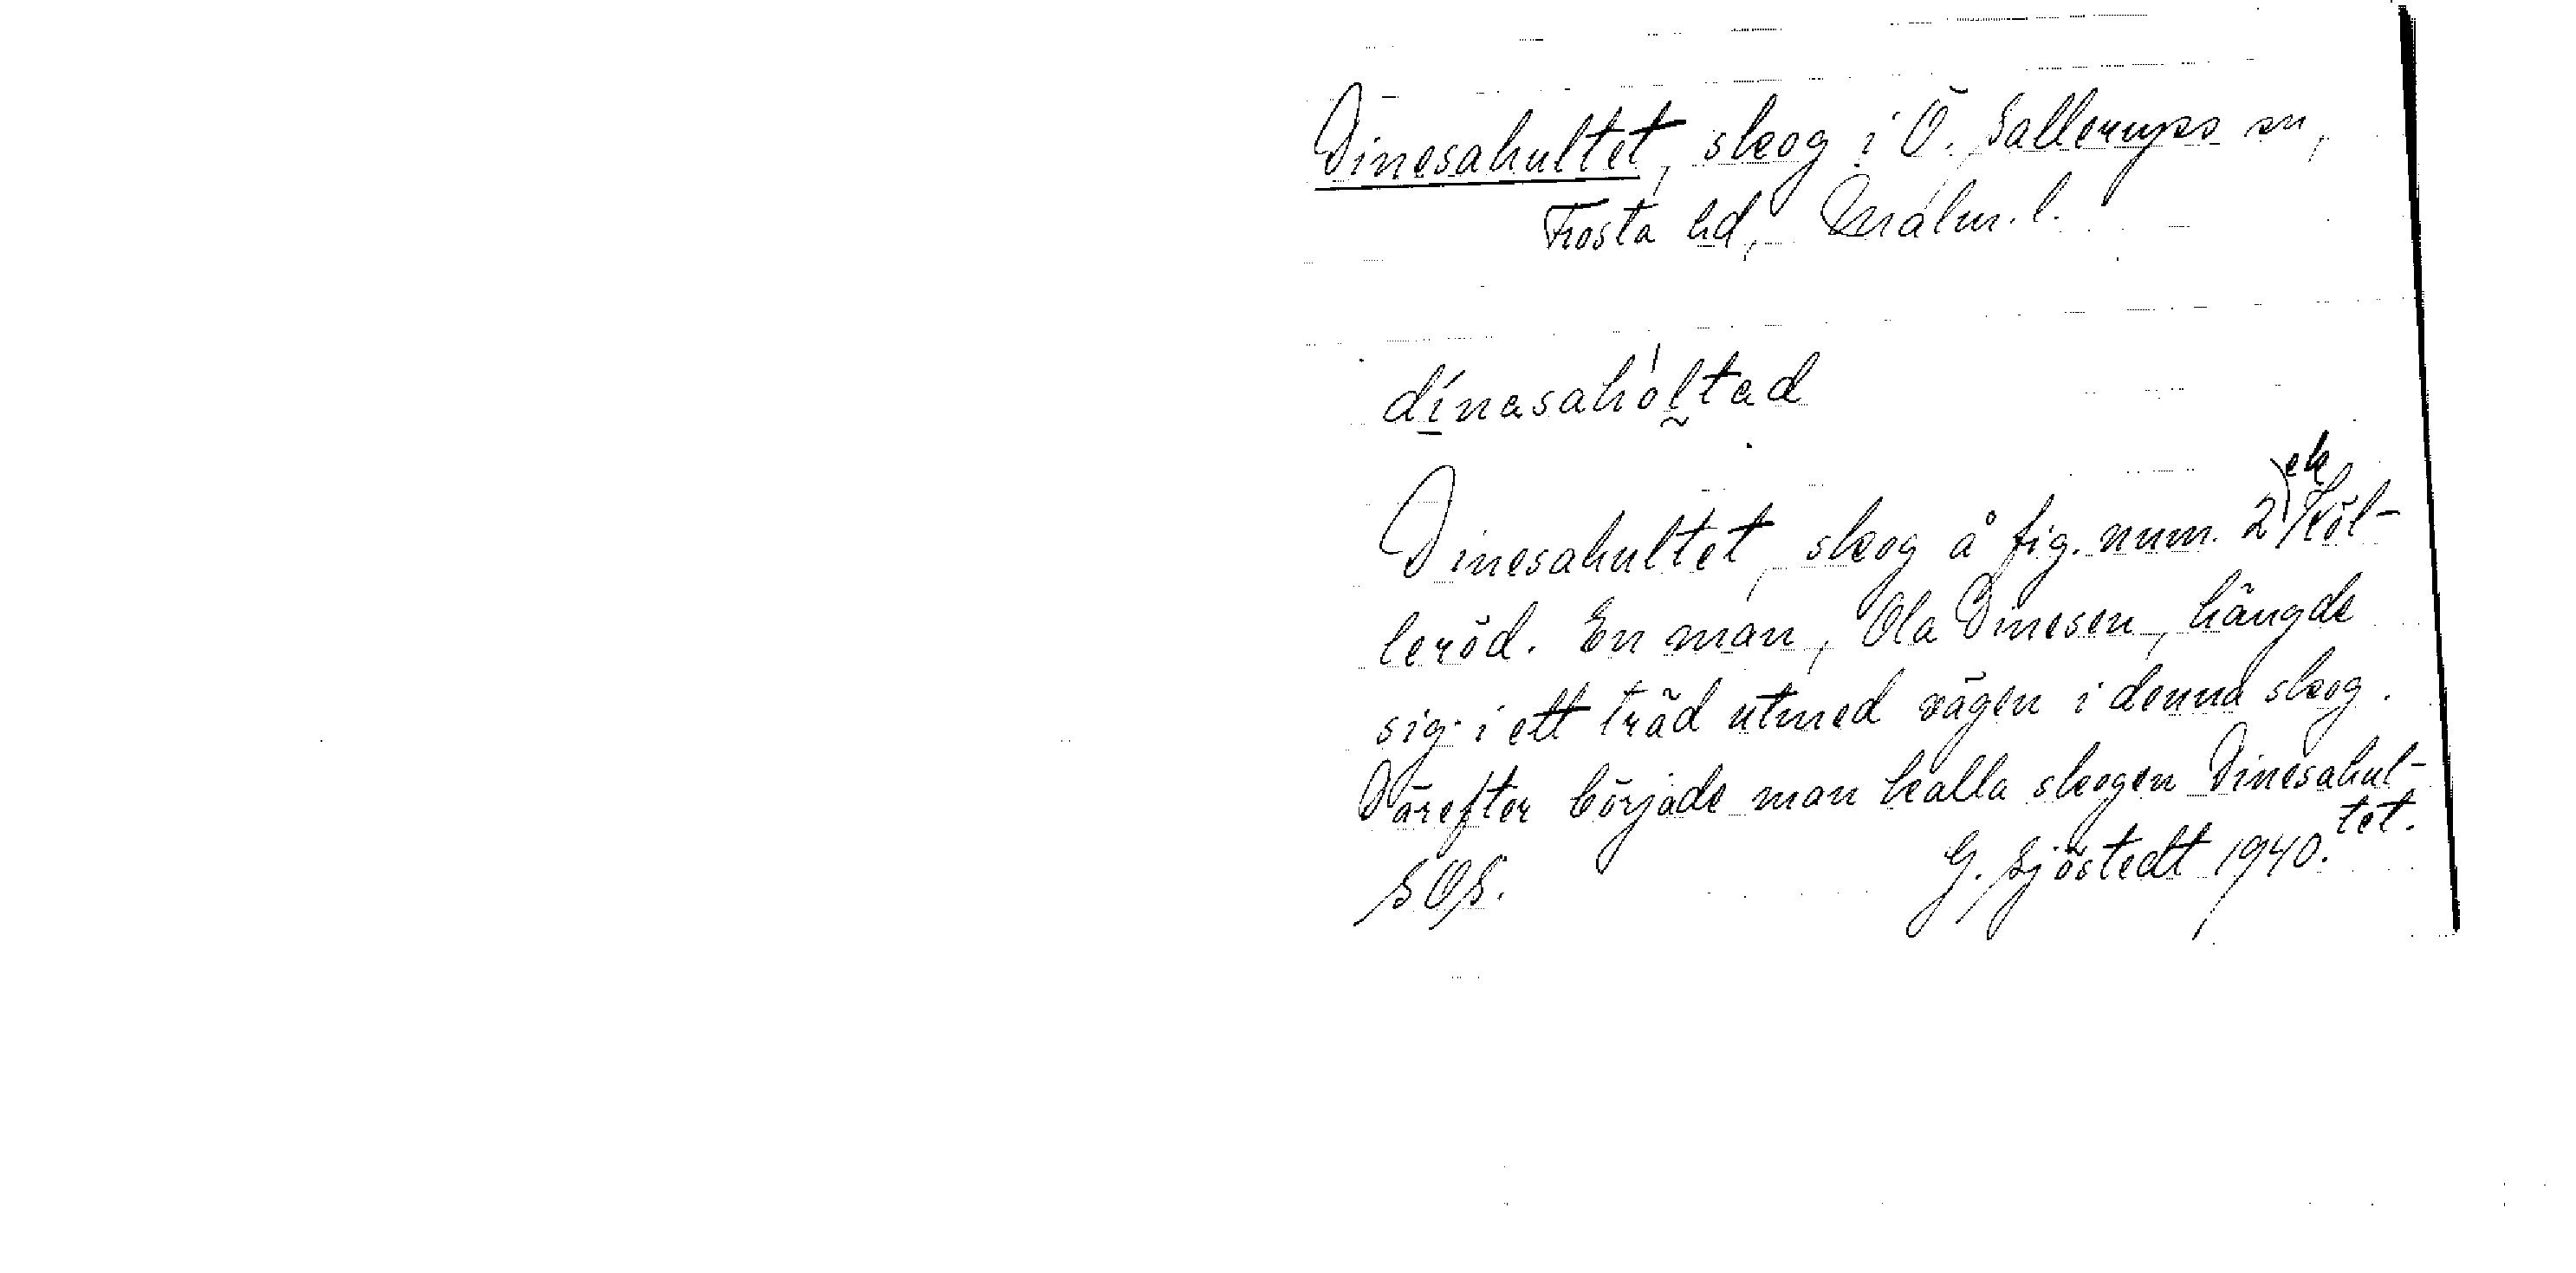 Dinesahultet, skog i Ö. Sallerups sn,
Frosta hd, Malm. l.
dinasahóltad
Dinesahultet, skog å fig. num. 2 ek Köl-
leröd. En man, Ola Dinesen, hängde
sig i ett träd utmed vägen i denna skog.
Därefter började man kalla skogen Dinesahul-
tet.
SOS. G. Sjöstedt 1940.